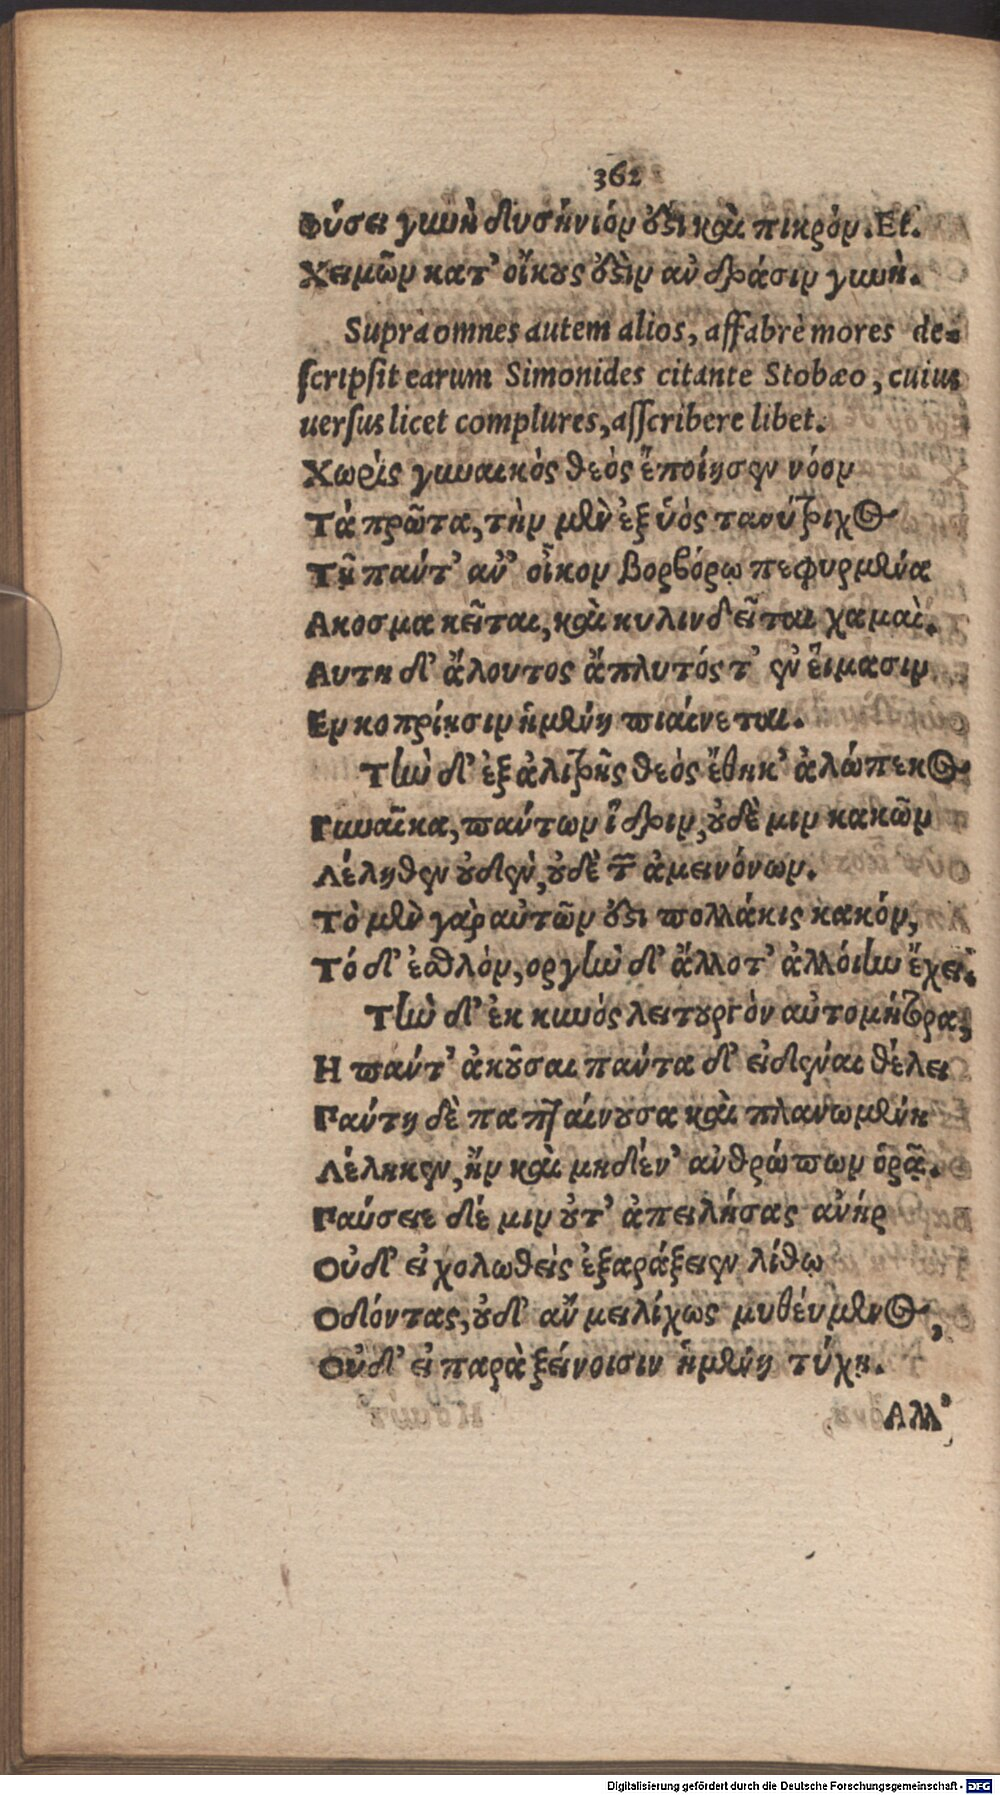 362
Φύσει γυνὴ δυσήνιόν ὅςι καὶ πικρόν. Et.
Χειμὼν κατ' οἴκους ὅςὶν ἀνδράσιν γυνὴ.
Supra omnes autem alios, affabrè mores de=
scripsit earum Simonides citante Stobæo, cuius
uersus licet complures, asscribere libet.
Χωρὶς γυναικὸς θεὸς ἐποίησεν νόον
Τὰ πρῶτα, τὴν μὲν ἐξ ὑὸς τανύτριχος
Τῇ πάντ' ἀν' οἶκον βορβόρῳ πεφυρμένα
Ακοσμα κεῖται, καὶ κυλινδεῖται χαμαὶ.
Αυτη δ' ἄλουτος ἄπλυτός τ' ἐν εἵμασιν
Εν κοπρίῃσιν ἡμένη πιαίνεται.
Τὴν δ' ἐξ ἀλιτρῆς θεὸς ἔθηκ' ἀλώπεκος
Γυναῖκα, πάντων ἴδριν, οὐδὲ μιν κακῶν
Λέληθεν οὐδὲν, οὐδὲ τῶν ἀμεινόνων.
Τὸ μὲν γὰρ αὐτῶν ὅςι πολλάκις κακόν,
Τό δ' ἐσθλόν, οργὴν δ' ἄλλοτ' ἀλλόιην ἔχει.
Τὴν δ' ἐκ κυνός λειτουργὸν αὐτομήτορα,
Η πάντ' ἀκοῦσαι πάντα δ' εἰδέναι θέλει
Γαύτη δὲ παπταίνουσα καὶ πλανωμένη
Λέληκεν, ἤν καὶ μηδέν' ἀνθρώπων ὁρᾷ.
Γαύσειε δέ μιν οὐτ' ἀπειλήσας ἀνήρ
Οὐδ' εἰ χολωθεὶς ἐξαράξειεν λίθῳ
Οδόντας, οὐδ' ἂν μειλίχως μυθέυμενος,
Οὐδ' εἰ παρὰ ξείνοισιν ἡμένη τύχῃ.
Αλλ'
Digitalisierung gefördert durch die Deutsche Forschungsgemeinschaft - DFG